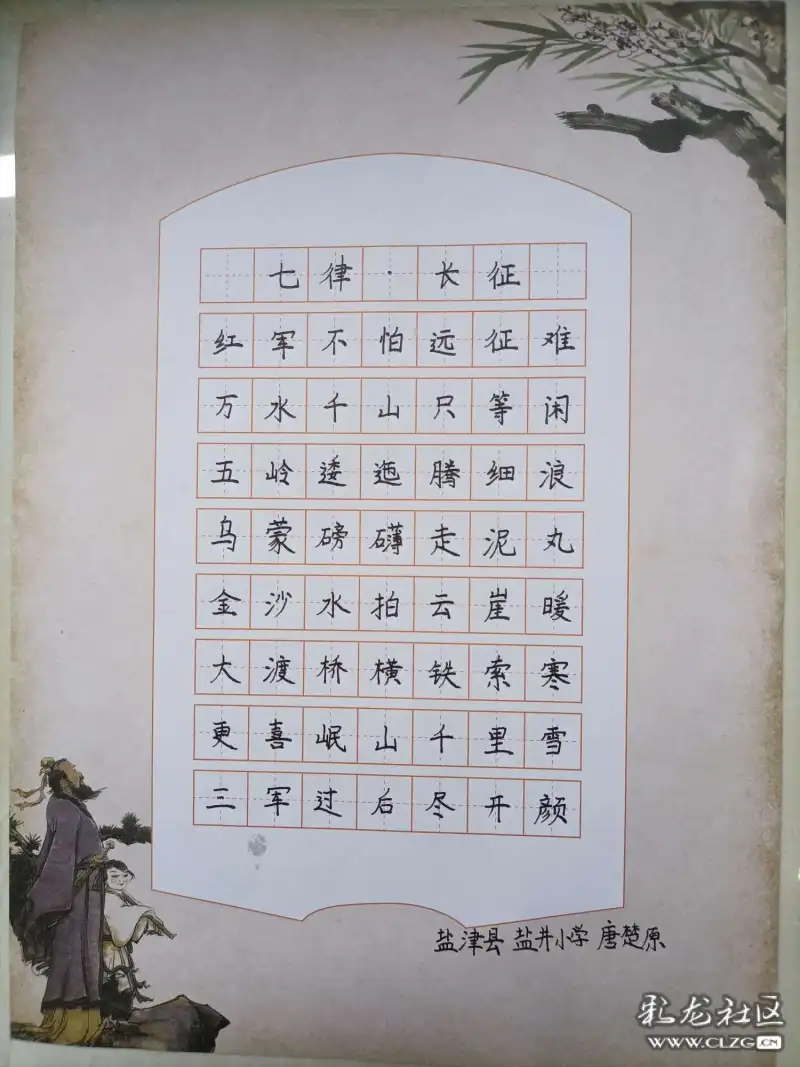 七律·长征
红军不怕远征难
万水千山只等闲
五岭逶迤腾细浪
乌蒙磅礴走泥丸
金沙水拍云崖暖
大渡桥横铁索寒
更喜岷山千里雪
三军过后尽开颜
盐津县 盐井小学 唐楚原
彩龙社区
WWW.CLZG.CN